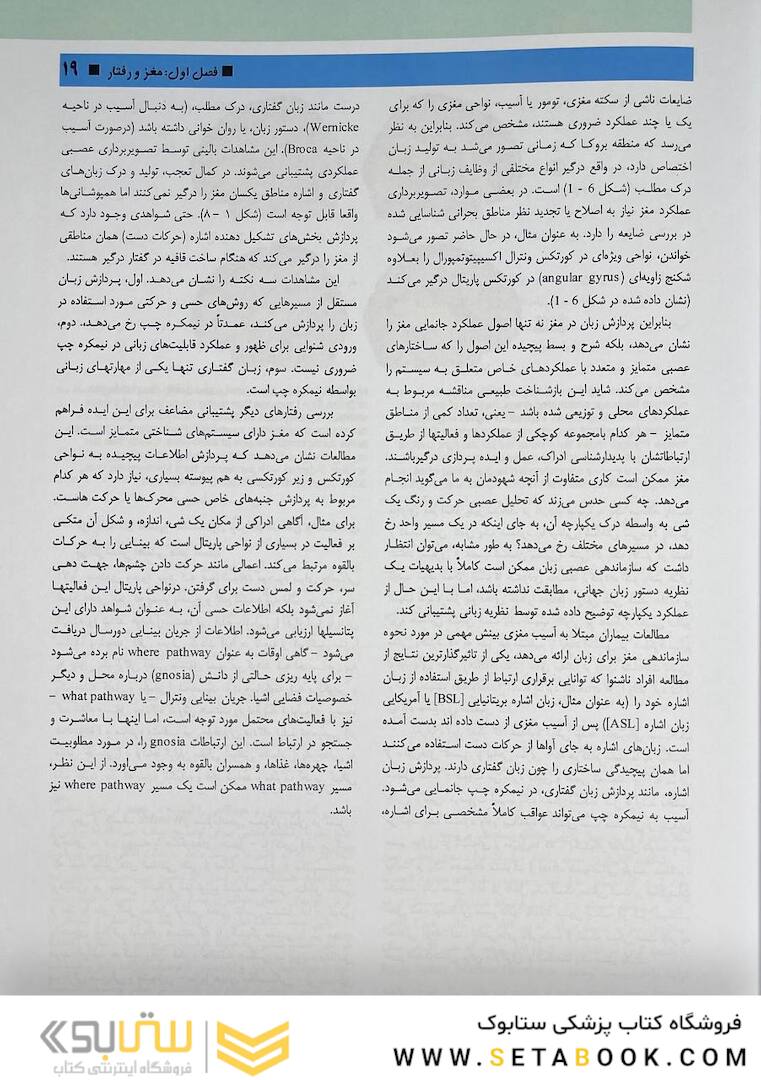 ■ فصل اول: مغز و رفتار ■ ۱۹
ضایعات ناشی از سکته مغزی، تومور یا آسیب، نواحی مغزی را که برای
یک یا چند عملکرد ضروری هستند، مشخص می‌کند. بنابراین به نظر
می‌رسد که منطقه بروکا کـه زمانی تصور می‌شد به تولیـد زبـان
اختصاص دارد، در واقع درگیر انواع مختلفی از وظایف زبـانی از جملـه
درک مطلـب (شـکل 6 - 1) اسـت. در بعضـی مـوارد، تصـویربرداری
عملکرد مغز نیاز به اصلاح یا تجدید نظر مناطق بحرانی شناسایی شده
در بررسی ضایعه را دارد. به عنوان مثال، در حال حاضر تصور می‌شـود
خواندن، نواحی ویژه‌ای در کورتکس ونترال اکسیپیتوتمپورال را بعـلاوه
شکنج زاویه‌ای (angular gyrus) در کورتکس پاریتال درگیر می‌کنـد
(نشان داده شده در شکل 6 - 1).
بنابراین پردازش زبان در مغز نه تنها اصول عملکرد جانمایی مغز را
نشان می‌دهد، بلکه شرح و بسط پیچیده این اصول را که سـاختارهای
عصبی متمایز و متعدد با عملکردهـای خـاص متعلـق بـه سیسـتم را
مشخص می‌کند. شاید این بازشـناخت طبیعـی مناقشـه مربـوط بـه
عملکردهای محلی و توزیعی شده باشد – یعنی، تعداد کمی از منـاطق
متمایز – هر کدام بامجموعه کوچکی از عملکردها و فعالیتها از طریـق
ارتباطاتشان با پدیدارشناسی ادراک، عمل و ایده پردازی درگیرباشـند.
مغز ممکن است کاری متفاوت از آنچه شهودمان به ما می‌گوید انجـام
می‌دهد. چه کسی حدس می‌زند که تحلیل عصبی حرکت و رنگ یـک
شی به واسطه درک یکپارچه آن، به جای اینکه در یک مسیر واحد رخ
دهد، در مسیرهای مختلف رخ می‌دهد؟ به طور مشابه، می‌توان انتظـار
داشت که سازماندهی عصبی زبان ممکن است کاملاً با بدیهیات یـک
نظریه دستور زبان جهانی، مطابقت نداشته باشد، امـا بـا ایـن حـال از
عملکرد یکپارچه توضیح داده شده توسط نظریه زبانی پشتیبانی کند.
مطالعات بیماران مبتلا به آسیب مغزی بینش مهمی در مورد نحوه
سازماندهی مغز برای زبان ارائه می‌دهد، یکی از تاثیرگذارترین نتـایج از
مطالعه افراد ناشنوا که توانایی برقراری ارتباط از طریق استفاده از زبـان
اشاره خود را (به عنوان مثال، زبان اشاره بریتانیایی [BSL] یا آمریکایی
زبان اشاره [ASL]) پس از آسیب مغزی از دست داده اند بدست آمـده
است. زبان‌های اشاره به جای آواها از حرکات دست اسـتفاده می‌کننـد
اما همان پیچیدگی ساختاری را چون زبان گفتاری دارند. پردازش زبـان
اشاره، مانند پردازش زبان گفتاری، در نیمکره چـپ جانمـایی می‌شـود.
آسیب به نیمکره چپ می‌تواند عواقب کاملاً مشخصـی بـرای اشـاره،
درست مانند زبان گفتاری، درک مطلب، (بـه دنبـال آسـیب در ناحیـه
Wernicke)، دستور زبان، یا روان خوانی داشته باشد (درصورت آسـیب
در ناحیه Broca). این مشاهدات بالینی توسط تصویربرداری عصـبی
عملکردی پشتیبانی می‌شوند. در کمال تعجب، تولید و درک زبان‌های
گفتاری و اشاره مناطق یکسان مغز را درگیر نمی‌کنند اما همپوشانی‌ها
واقعا قابل توجه است (شکل ۱ – ۸). حتی شـواهدی وجـود دارد کـه
پردازش بخش‌های تشکیل دهنده اشاره (حرکات دست) همان مناطقی
از مغز را درگیر می‌کند که هنگام ساخت قافیه در گفتار درگیر هستند.
این مشاهدات سه نکتـه را نشـان می‌دهـد. اول، پـردازش زبـان
مستقل از مسیرهایی که روش‌های حسی و حرکتی مـورد اسـتفاده در
زبان را پردازش می‌کنـد، عمـدتاً در نیمکـره چـپ رخ می‌دهـد. دوم،
ورودی شنوایی برای ظهور و عملکرد قابلیت‌های زبانی در نیمکره چپ
ضروری نیست. سوم، زبان گفتـاری تنهـا یکـی از مهارتهـای زبـانی
بواسطه نیمکره چپ است.
بررسی رفتارهای دیگر پشتیبانی مضاعف برای این ایـده فـراهم
کرده است که مغـز دارای سیسـتم‌های شـناختی متمـایز اسـت. ایـن
مطالعات نشان می‌دهـد کـه پـردازش اطلاعـات پیچیـده بـه نـواحی
کورتکس و زیر کورتکسی به هم پیوسته بسیاری، نیاز دارد که هر کدام
مربوط به پردازش جنبه‌های خاص حسی محرک‌ها یا حرکت هاسـت.
برای مثال، آگاهی ادراکی از مکان یک شی، اندازه، و شکل آن متکـی
بر فعالیت در بسیاری از نواحی پاریتال است که بینایی را بـه حرکـات
بالقوه مرتبط می‌کند. اعمالی مانند حرکت دادن چشم‌ها، جهـت دهـی
سر، حرکت و لمس دست برای گرفتن. درنواحی پاریتال این فعالیتهـا
آغاز نمی‌شود بلکه اطلاعات حسی آن، بـه عنـوان شـواهد دارای ایـن
پتانسیلها ارزیابی می‌شود. اطلاعات از جریان بینـایی دورسـال دریافـت
می‌شود – گاهی اوقات به عنوان where pathway نام برده می‌شـود
– برای پایه ریزی حـالتی از دانـش (gnosia) دربـاره محـل و دیگـر
خصوصیات فضایی اشیا. جریان بینایی ونترال – یا what pathway –
نیز با فعالیت‌های محتمل مورد توجه است، امـا اینهـا بـا معاشـرت و
جستجو در ارتباط است. این ارتباطات gnosia را، در مـورد مطلوبیـت
اشیا، چهره‌ها، غذاها، و همسران بالقوه به وجود مـی‌آورد. از ایـن نظـر،
مسیر what pathway ممکن است یک مسیر where pathway نیز
باشد.
فروشگاه کتاب پزشکی ستابوک
WWW.SETABOOK.COM
ستابوک
فروشگاه اینترنتی کتاب